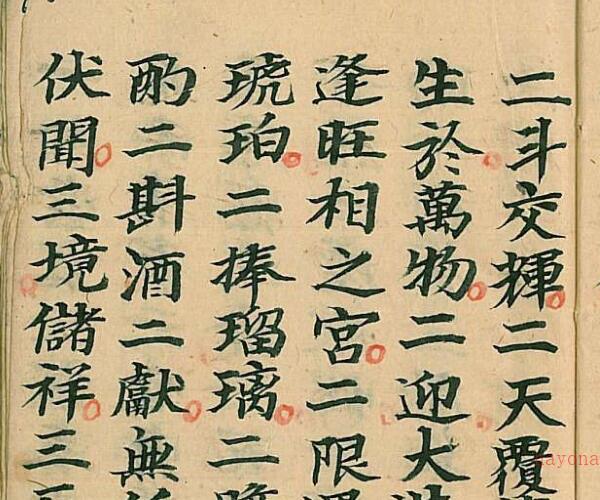 二斗交輝二天覆
生於萬物二迎大
逢旺相之宮二限
琥珀二捧瑠璃二
酌二斟酒二獻無
伏聞三境儲祥三
ayona